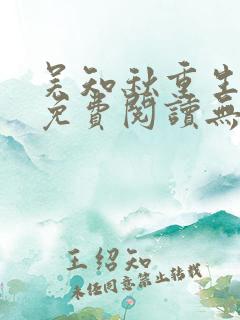 吴知秋重生
免費閱讀無
王紹知
未经同意禁止转载